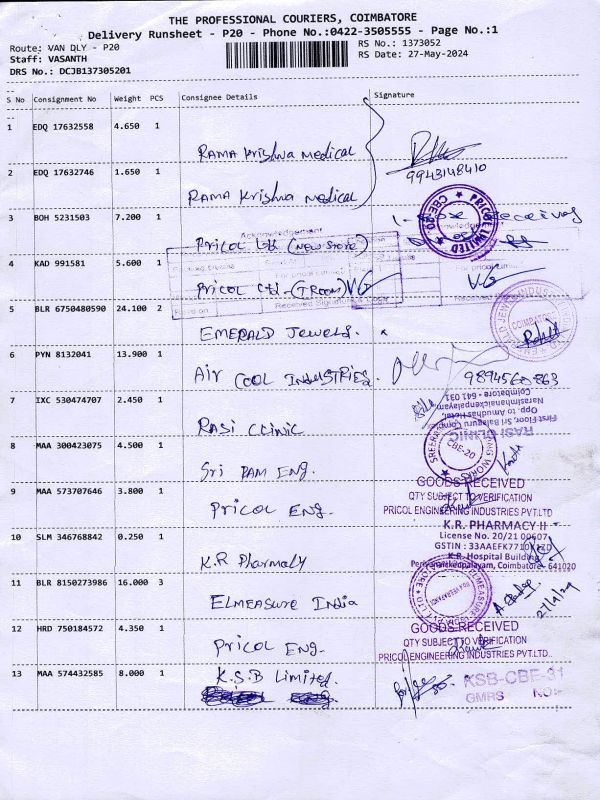 THE PROFESSIONAL COURIERS, COIMBATORE
Delivery Runsheet - P20 - Phone No.:0422-3505555 - Page No.:1
Route: VAN DLY - P20
RS No.: 1373052
Staff: VASANTH
RS Date: 27-May-2024
DRS No.: DCJB137305201
S No Consignment No Weight PCS Consignee Details Signature
1 EDQ 17632558 4.650 1
Rama Krishna Medical
9943148410
2 EDQ 17632746 1.650 1
Rama Krishna Medical
3 BOH 5231503 7.200 1
PRICOL LIMITED
CBE-20
Acknowledgement
Pricol Ltd (New Store)
4 KAD 991581 5.600 1
For pricol Limited
Pricol Ltd - (T Room) VG
VG
Received Signature
Received
5 BLR 6750480590 24.100 2
COIMBATORE
Emerald Jewels.
6 PYN 8132041 13.900 1
Air Cool Industries.
9894560863
7 IXC 530474707 2.450 1
Rasi Clinic
RASI CLINIC
First Floor, Sri Balaguru Complex
Opp. to Amudhas Hotel,
Narasimhanaickenpalayam
Coimbatore - 641 031
8 MAA 300423075 4.500 1
CBE-20
Sri Ram Eng.
GOODS RECEIVED
QTY SUBJECT TO VERIFICATION
PRICOL ENGINEERING INDUSTRIES PVT.LTD
9 MAA 573707646 3.800 1
Pricol Eng.
K.R. PHARMACY II
License No. 20/21 00607
GSTIN : 33AAEFK7710
K.R. Hospital Building
Periyanaickenpalayam, Coimbatore 641020
10 SLM 346768842 0.250 1
K.R Pharmacy
11 BLR 8150273986 16.000 3
Elmeasure India
GOODS RECEIVED
QTY SUBJECT TO VERIFICATION
PRICOL ENGINEERING INDUSTRIES PVT.LTD..
12 HRD 750184572 4.350 1
Pricol Eng.
13 MAA 574432585 8.000 1
K.S.B Limited.
KSB-CBE-31
GMRS NO: